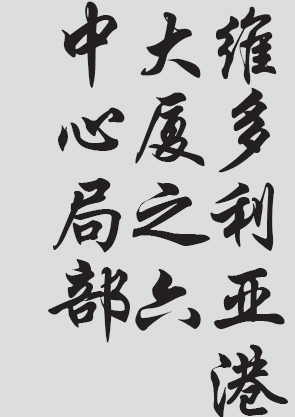 维多利亚港
大厦之六
中心局部